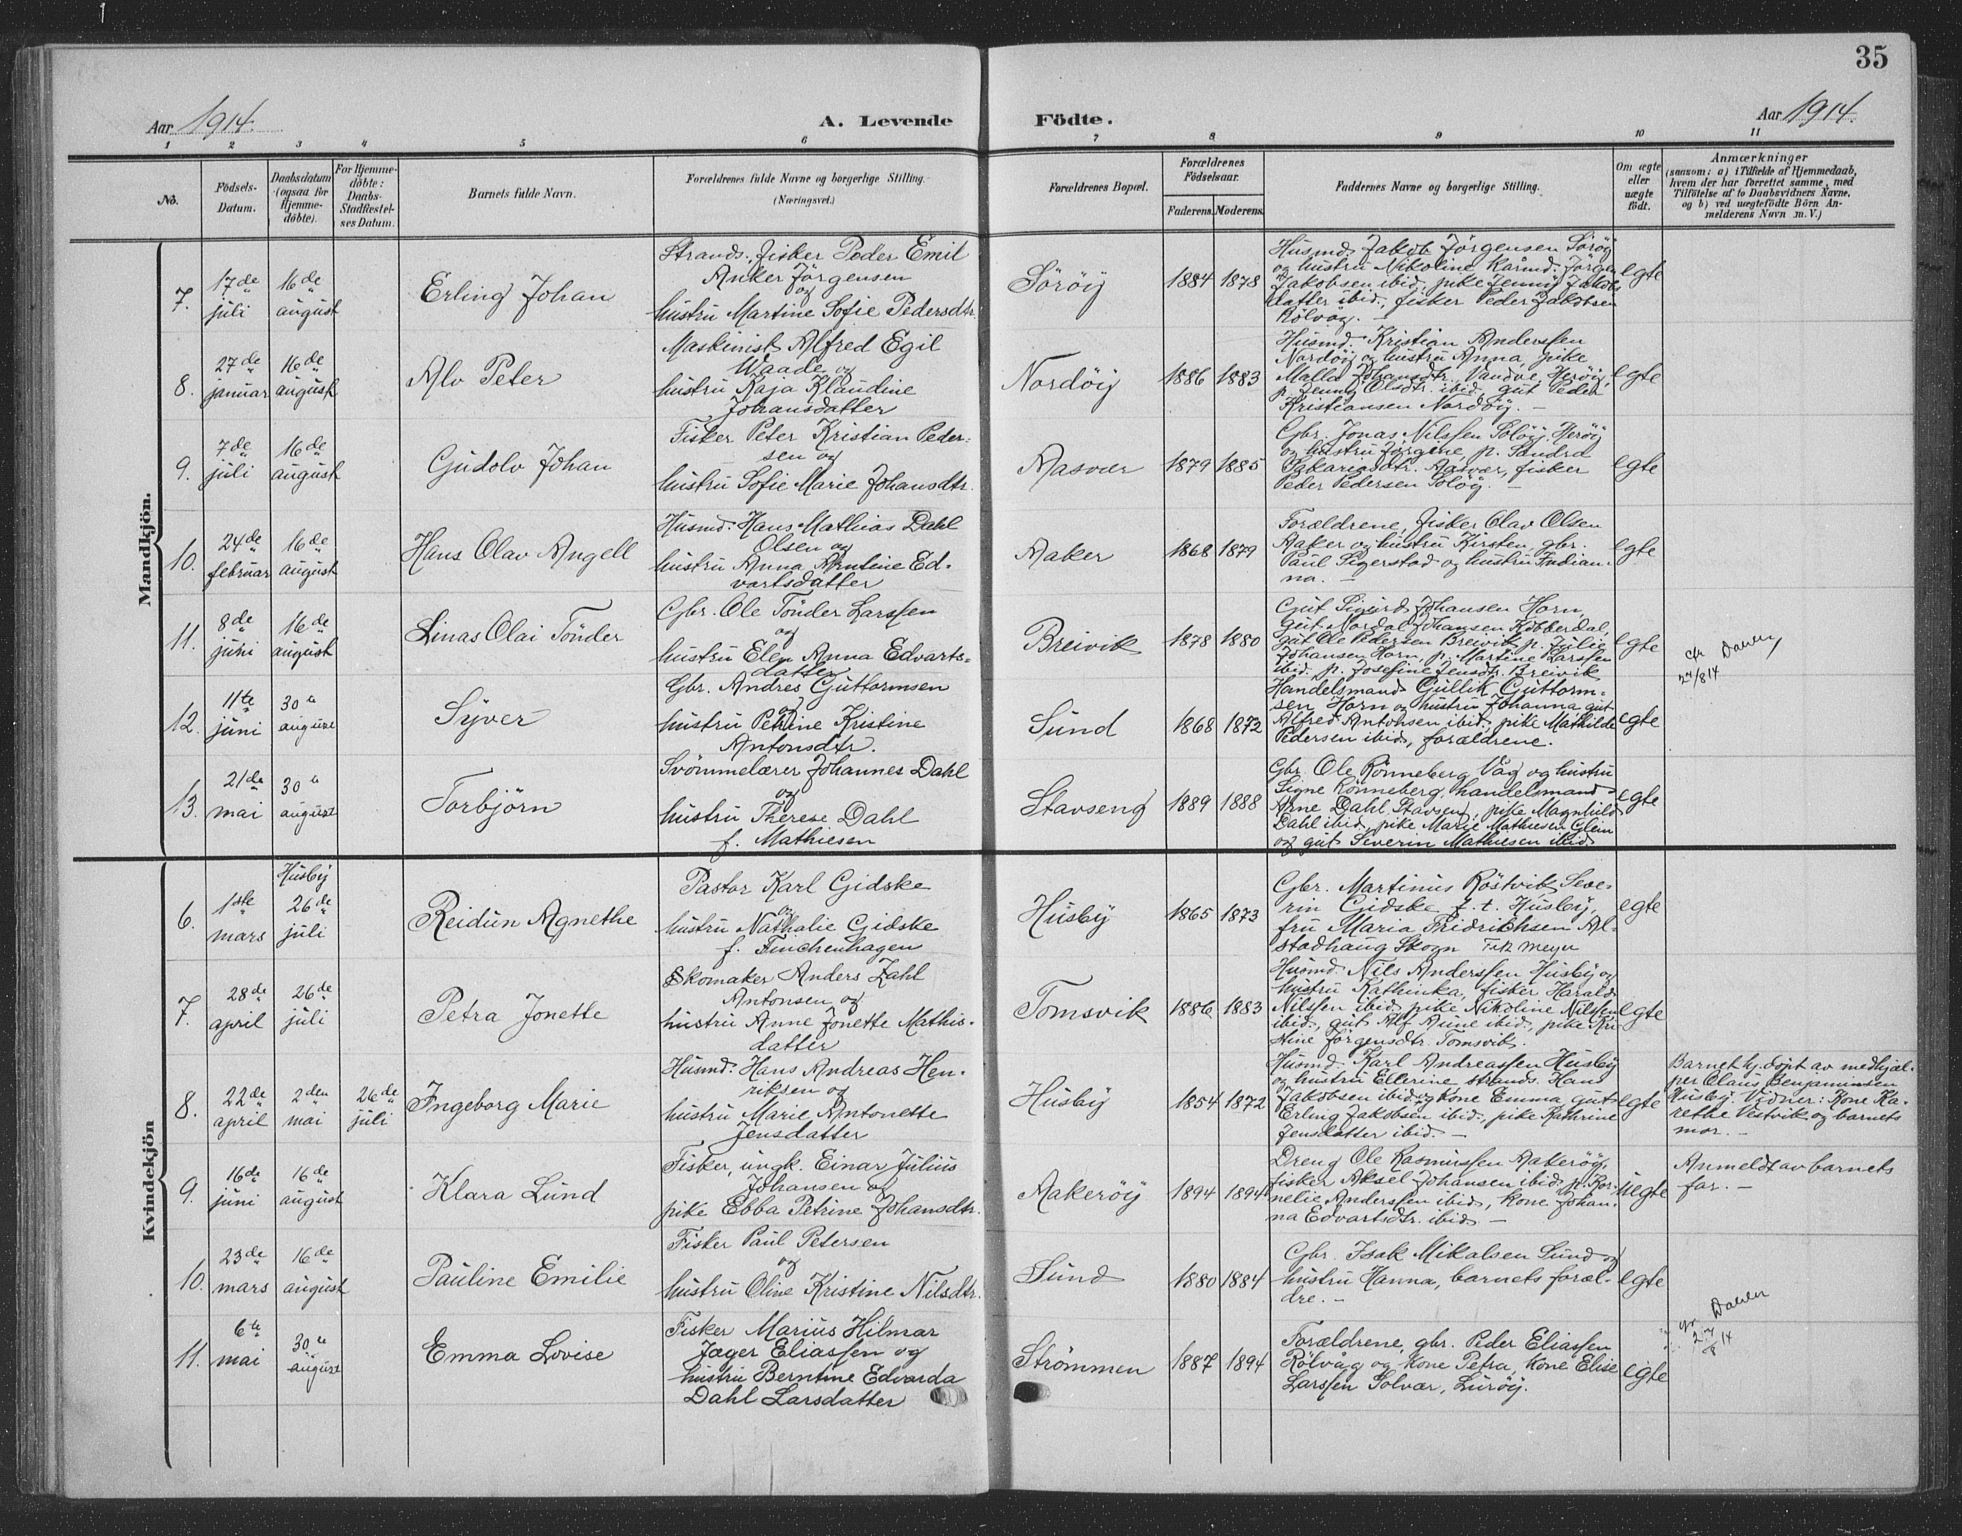 35
Aar 1914.
A. Levende
Födte.
Aar 1914.
1 2 3 4 5 6 7 8 9 10 11
No.
Födsels-
Datum.
Daabsdatum
(ogsaa for
Hjemme-
döbte).
For Hjemme-
döbte:
Daabs-
Stadfæstel-
ses Datum.
Barnets fulde Navn.
Forældrenes fulde Navne og borgerlige Stilling
(Næringsvei.)
Forældrenes Bopæl.
Forældrenes
Födselsaar.
Faderens. Moderens.
Faddernes Navne og borgerlige Stilling.
Om ægte
eller
uægte
födt.
Anmærkninger
(saasom: a) i Tilfælde af Hjemmedaab,
hvem der har forrettet samme, med
Tilföielse af to Daabsvidners Navne,
og b) ved uægtefödte Börn An-
melderens Navn m. V.)
Mandkjön.
7.
17de
juli
16de
august
Erling Johan
Strands., fisker Peder Emil
Anker Jörgensen
og
hustru Martine Sofie Pedersdtr.
Söröy
1884 1878
Husmd. Jakob Jörgensen Söröy
og hustru Nikoline Kårmd. Jörgen
Jakobsen ibid, pike Jenny Jakobs
datter ibid., fisker Peder Jakobsen
Rölvåg. –
egte
8.
27de
januar
16de
august
Alv Peter
Maskinist Alfred Egil
Waade og
hustru Kaja Klaudine
Johansdatter
Nordöy
1886 1883
Husmd. Kristian Anderssen
Nordöy og hustru Anna, pike
Malla Johansdtr. Vandve, Heröy,
p. Jenny Olsdtr. ibid, gut Peder
Kristiansen Nordöy. –
egte
9.
7de
juli
16de
august
Gudolv Johan
Fisker Peter Kristian Peder-
sen og
hustru Sofie Marie Johansdtr.
Aasvær
1879 1885
Gbr. Jonas Nilssen Solöy, Heröy
og hustru Jörgine, p. Sandra
Sakariasdtr. Aasvær, fisker
Peder Pedersen Solöy. –
egte
10.
24de
februar
16de
august
Hans Olav Angell
Husmd. Hans Mathias Dahl
Olsen og
hustru Anna Arntine Ed-
vartsdatter
Aaker
1868 1879
Forældrene, fisker Olav Olsen
Aaker og hustru Kirsten, gbr.
Paul Sigerstad og hustru Indian-
na. –
egte
11.
8de
juni
16de
august
Linas Olai Tönder
Gbr. Ole Tönder Larssen
og
hustru Elen Anna Edvarts-
datter
Breivik
1878 1880
Gut Sigurd Johansen Horn,
gut Nordal Johansen Kobberdal,
gut Ole Pedersen Breivik, p. Julie
Johansen Horn, p. Martine Larssen
ibid. p. Josefine Jensdtr. Breivik
egte
24/8 14
12.
11te
juni
30te
august
Syver
Gbr. Andres Guttormsen
og
hustru Petrine Kristine
Antonsdtr.
Sund
1868 1872
Handelsmand Gullik Guttorm-
sen Horn og hustru Johanna gut
Alfred Antonsen ibid., pike Mathilde
Pedersen ibid, forældrene.
egte
13.
21de
mai
30te
august
Torbjörn
Svömmelærer Johannes Dahl
og
hustru Therese Dahl
f. Mathiesen
Stavseng
1889 1888
Gbr. Ole Rönneberg Våg og hustru
Signe Rönneberg, handelsmand
Arne Dahl Stavseng, pike Magnhild
Dahl ibid, pike Marie Mathiesen Glein
og gut Severin Mathiesen ibid
egte
Kvindekjön
6.
1ste
mars
Husby
26de
juli
Reidun Agnethe
Pastor Karl Gidske
og
hustru Nathalie Gidske
f. Finchenhagen
Husby
1865 1873
Gbr. Martinus Röstvik Seve-
rin Gidske f. t. Husby,
fru Maria Fridrichsen Al-
stadhaug Skogn
egte
7.
28de
april
26de
juli
Petra Jonette
Skomaker Anders Zahl
Antonsen og
hustru Anne Jonette Mathis-
datter
Tomsvik
1886 1883
Husmd. Nils Anderssen Husby og
hustru Kathinka, fisker Harald
Nilssen ibid, pike Nikoline Nilssen
ibid, gut Alf Aune ibid, pike Kri-
stine Jörgensdtr. Tomsvik.
egte
8.
22de
april
2den
mai
26de
juli
Ingeborg Marie
Husmd. Hans Andreas Hen-
riksen og
hustru Marie Antonette
Jensdatter
Husby
1854 1872
Husmd. Karl Andreassen Husby
og hustru Ellerine strands. Hans
Jakobsen ibid og kone Emma gut
Erling Jakobsen ibid, pike Kathrine
Jensdatter ibid. –
egte
Barnet hj. döpt av medhjæl-
per Claus Benjaminsen
Husby. Vidner: Kone Ka-
rethe Vestvik og barnets
mor. –
9.
16de
juni
16de
august
Klara Lund
Fisker, ungk. Einar Julius
Johansen og
pike Ebba Petrine Johansdtr.
Aakeröy
1894 1894
Dreng Ole Rasmussen Aakeröy,
fisker Aksel Johansen ibid, p. Kor-
nelie Anderssen ibid, kone Johan-
na Edvartsdtr. ibid. –
uegte
Anmeldt av barnets
far. –
10.
23de
mars
16de
august
Pauline Emilie
Fisker Paul Petersen
og
hustru Oline Kristine Nilsdtr.
Sund
1880 1884
Gbr. Isak Mikalsen Sund og
hustru Hanna, barnets foræl-
dre. –
egte
11.
6te
mai
30te
august
Emma Lovise
Fisker Marius Hilmar
Jæger Eliassen og
hustru Berntine Edvarda
Dahl Larsdatter
Strömmen
1887 1894
Forældrene, gbr. Peder Eliassen
Rölvåg og kone Petra, kone Elise
Larssen Solvær, Luröy.
egte